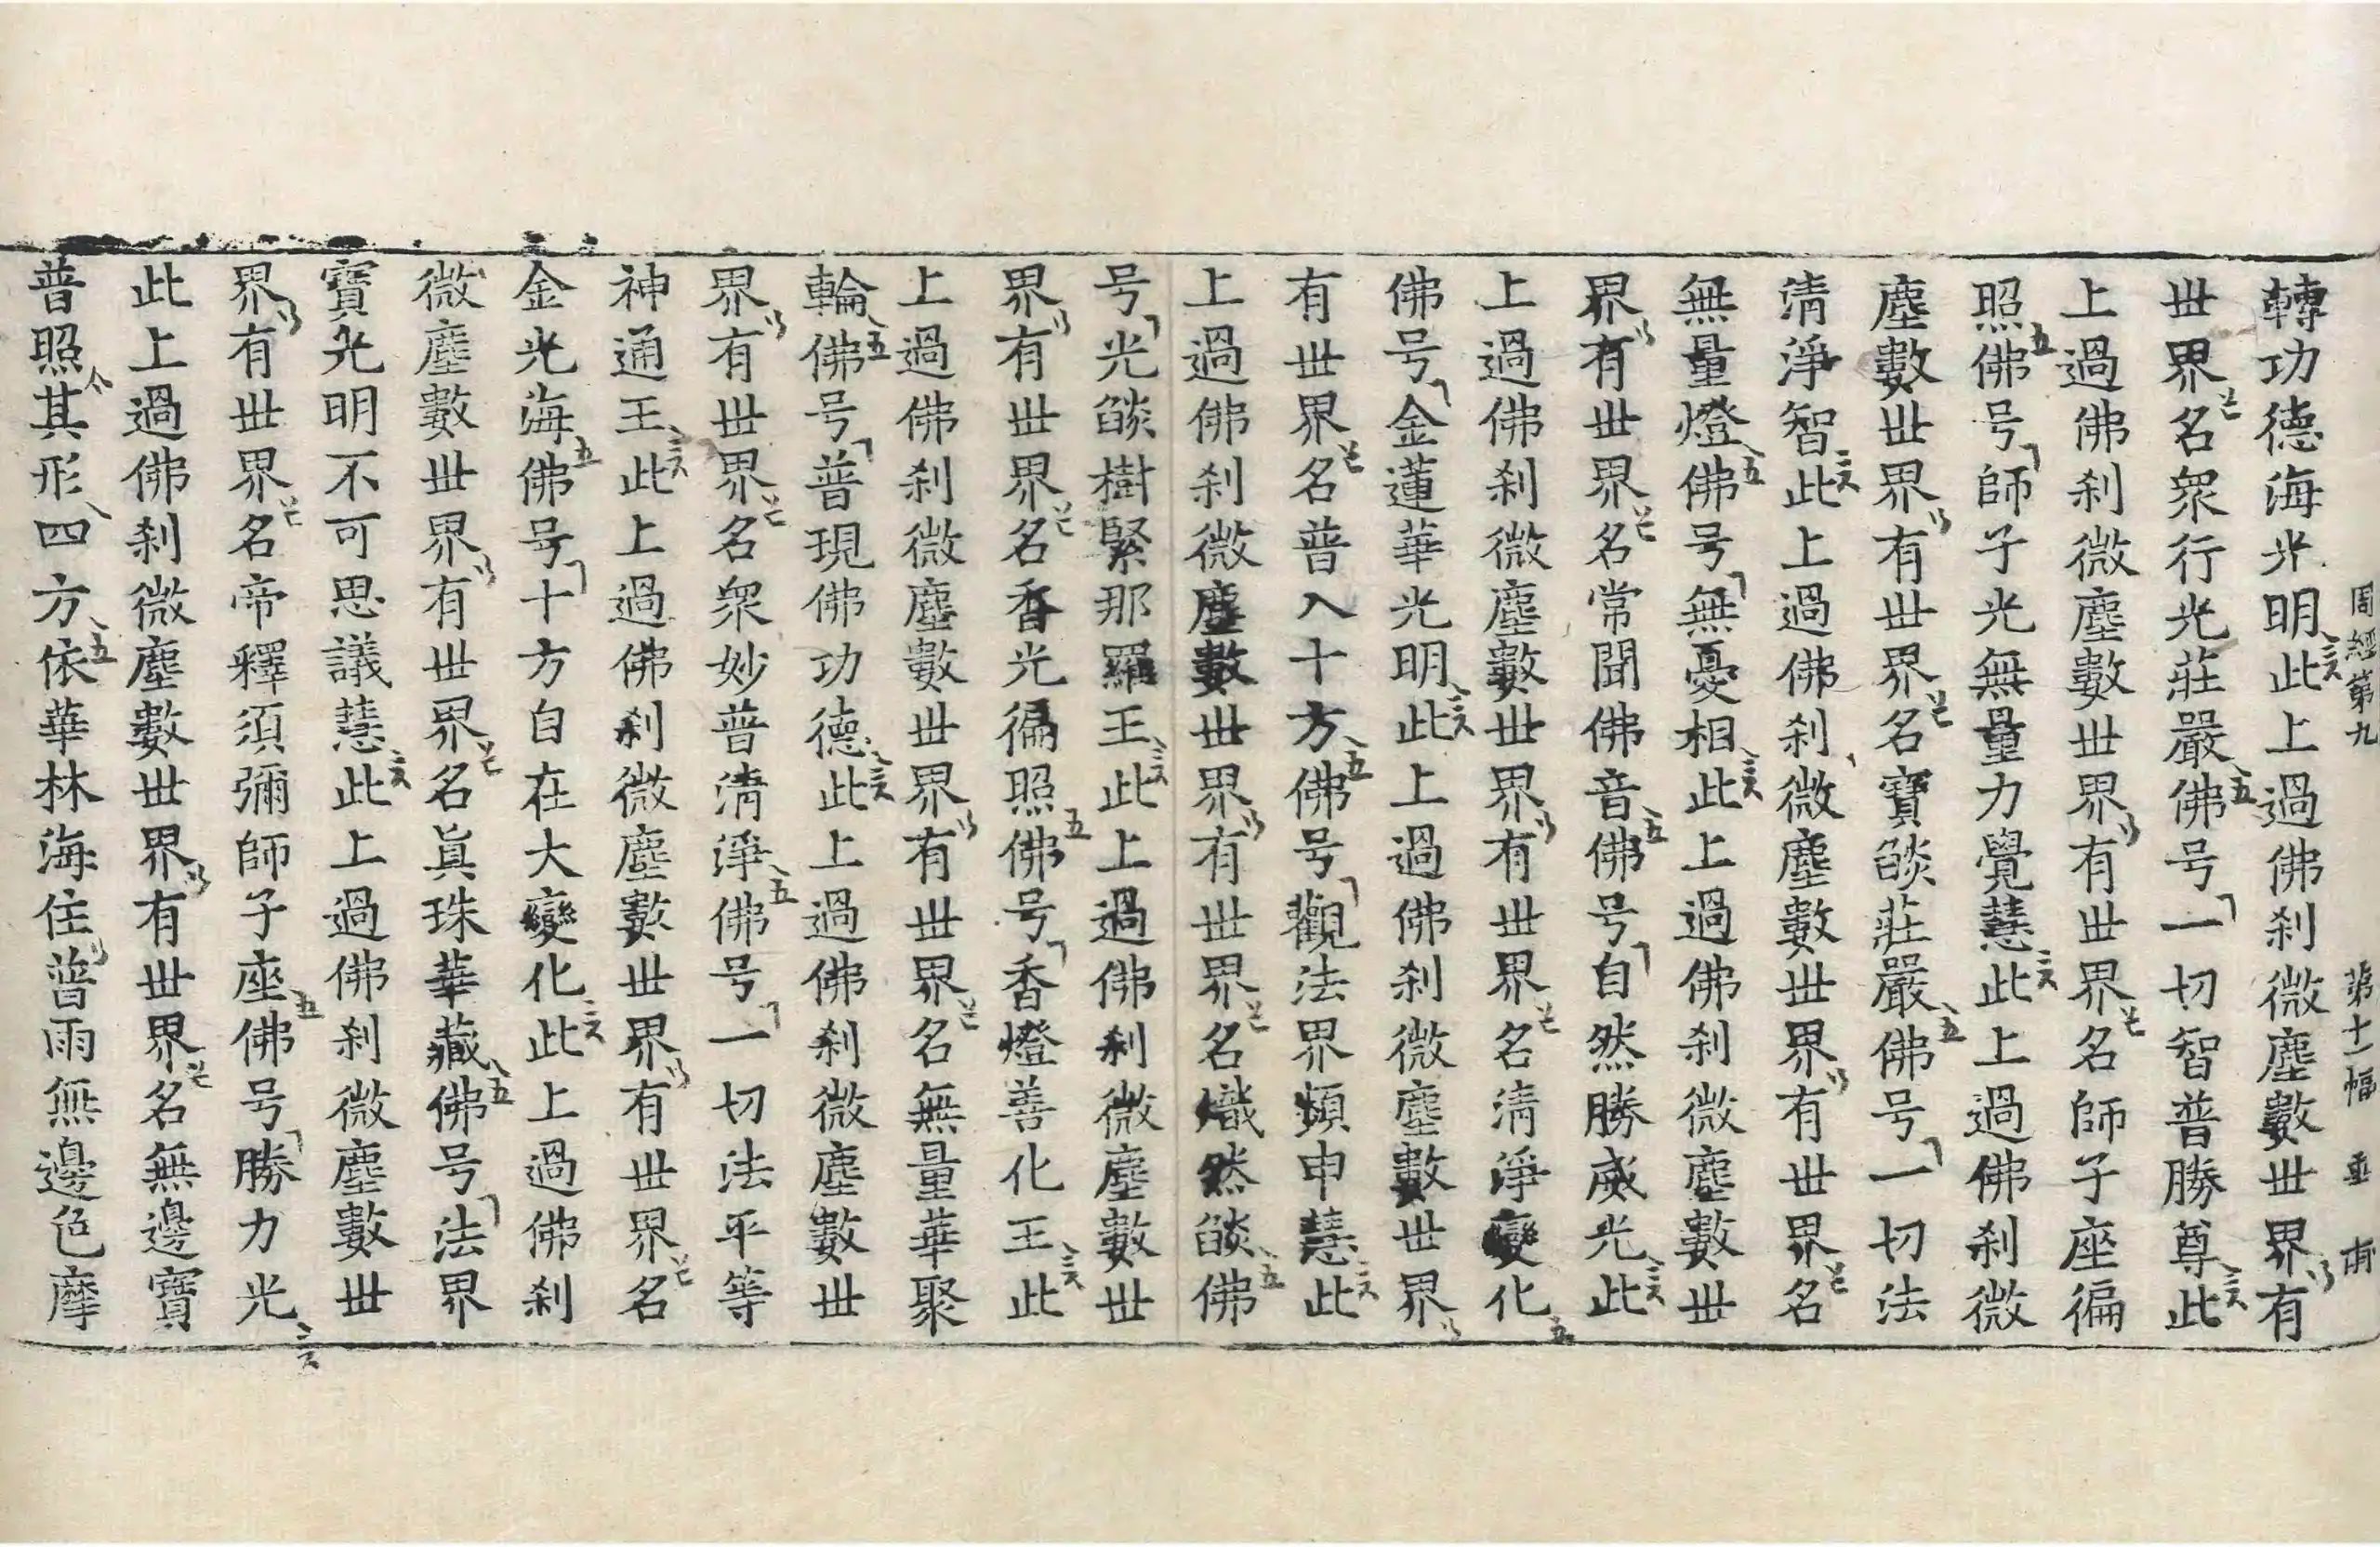 周經第九 第十一幅
轉功德海光明此上過佛刹微塵數丗界有
丗界名衆行光莊嚴佛号一切智普勝尊此
上過佛刹微塵數丗界有丗界名師子座徧
照佛号師子光無量力覺慧此上過佛刹微
塵數丗界有丗界名寶燄莊嚴佛号一切法
清淨智此上過佛刹微塵數丗界有丗界名
無量燈佛号無憂相此上過佛刹微塵數丗
界有丗界名常聞佛音佛号自然勝威光此
上過佛刹微塵數丗界有丗界名清淨變化
佛号金蓮華光明此上過佛刹微塵數丗界
有丗界名普入十方佛号觀法界頻申慧此
上過佛刹微塵數丗界有丗界名熾然燄佛
号光燄樹緊那羅王此上過佛刹微塵數丗
界有丗界名香光徧照佛号香燈善化王此
上過佛刹微塵數丗界有丗界名無量華聚
輪佛号普現佛功德此上過佛刹微塵數丗
界有丗界名衆妙普清淨佛号一切法平等
神通王此上過佛刹微塵數丗界有丗界名
金光海佛号十方自在大變化此上過佛刹
微塵數丗界有丗界名眞珠華藏佛号法界
寶光明不可思議慧此上過佛刹微塵數丗
界有丗界名帝釋須彌師子座佛号勝力光
此上過佛刹微塵數丗界有丗界名無邊寶
普照其形四方依華林海住普雨無邊色摩